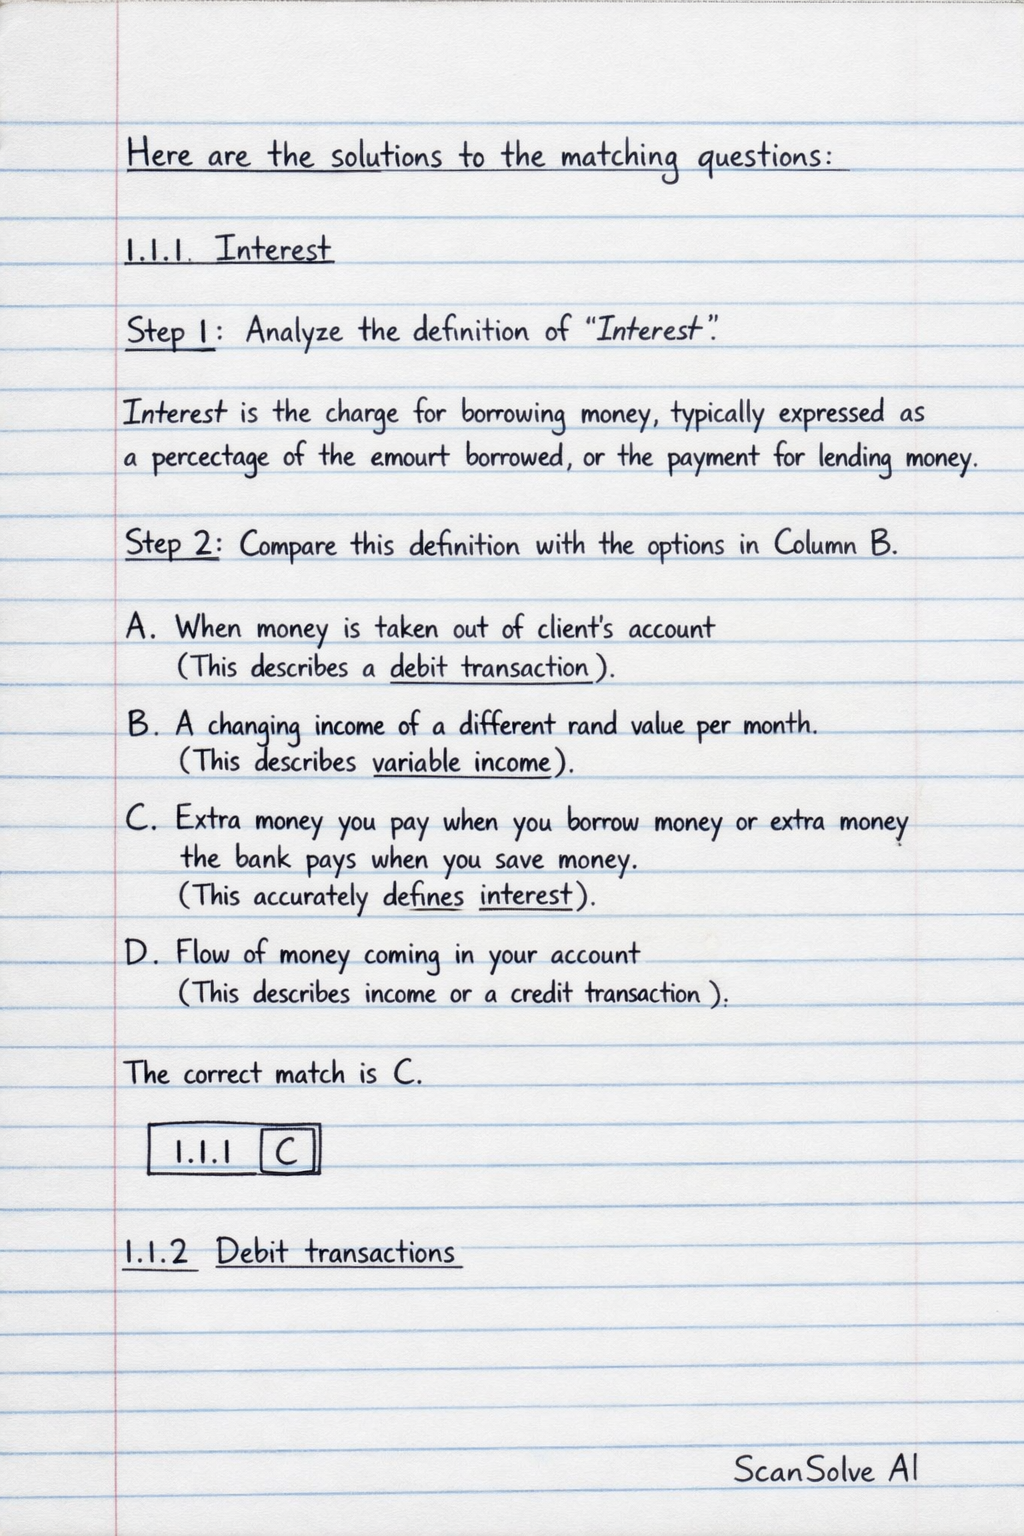 Here are the solutions to the matching questions:
1.1.1. Interest
Step 1: Analyze the definition of "Interest".
Interest is the charge for borrowing money, typically expressed as
a percectage of the emourt borrowed, or the payment for lending money.
Step 2: Compare this definition with the options in Column B.
A. When money is taken out of client's account
(This describes a debit transaction).
B. A changing income of a different rand value per month.
(This describes variable income).
C. Extra money you pay when you borrow money or extra money
the bank pays when you save money.
(This accurately defines interest).
D. Flow of money coming in your account
(This describes income or a credit transaction).
The correct match is C.
1.1.1 C
1.1.2 Debit transactions
ScanSolve AI